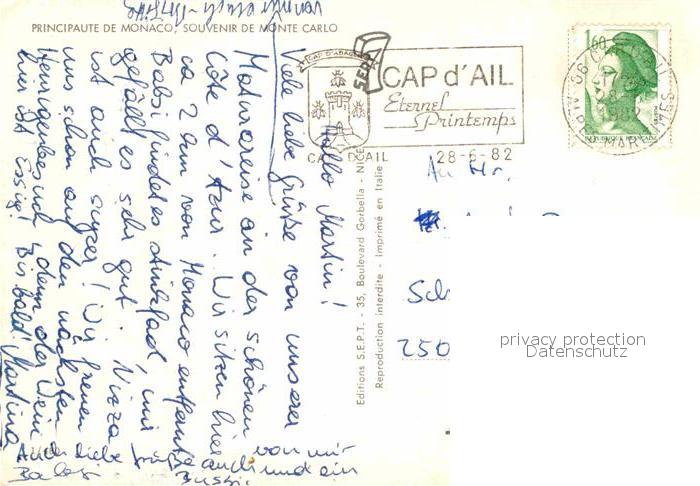 PRINCIPAUTE DE MONACO, SOUVENIR DE MONTE CARLO
Hallo Martin!
Viele liebe Grüße von unserer
Maturareise an der schönen
Côte d'Azur. Wir sitzen hier
ca 2 km von Monaco entfernt.
Babsi findet es stinkfad, mir
gefällt es sehr gut. Nizza
ist auch super! Wir freuen
uns schon auf den nächsten
Heurigenbesuch, denn der Wein
hier ist Essig! Bis bald! Martina
Auch liebe Grüße von mir
auch und ein
Bussi
CAP D'AIL
CAP d'AIL
Eternel
Printemps
28-6-82
1,60
REPUBLIQUE FRANÇAISE
ALPES MARITIMES
Editions S.E.P.T. - 35, Boulevard Gorbella - NICE
Reproduction interdite - Imprimé en Italie
An Hr.
250
privacy protection
Datenschutz